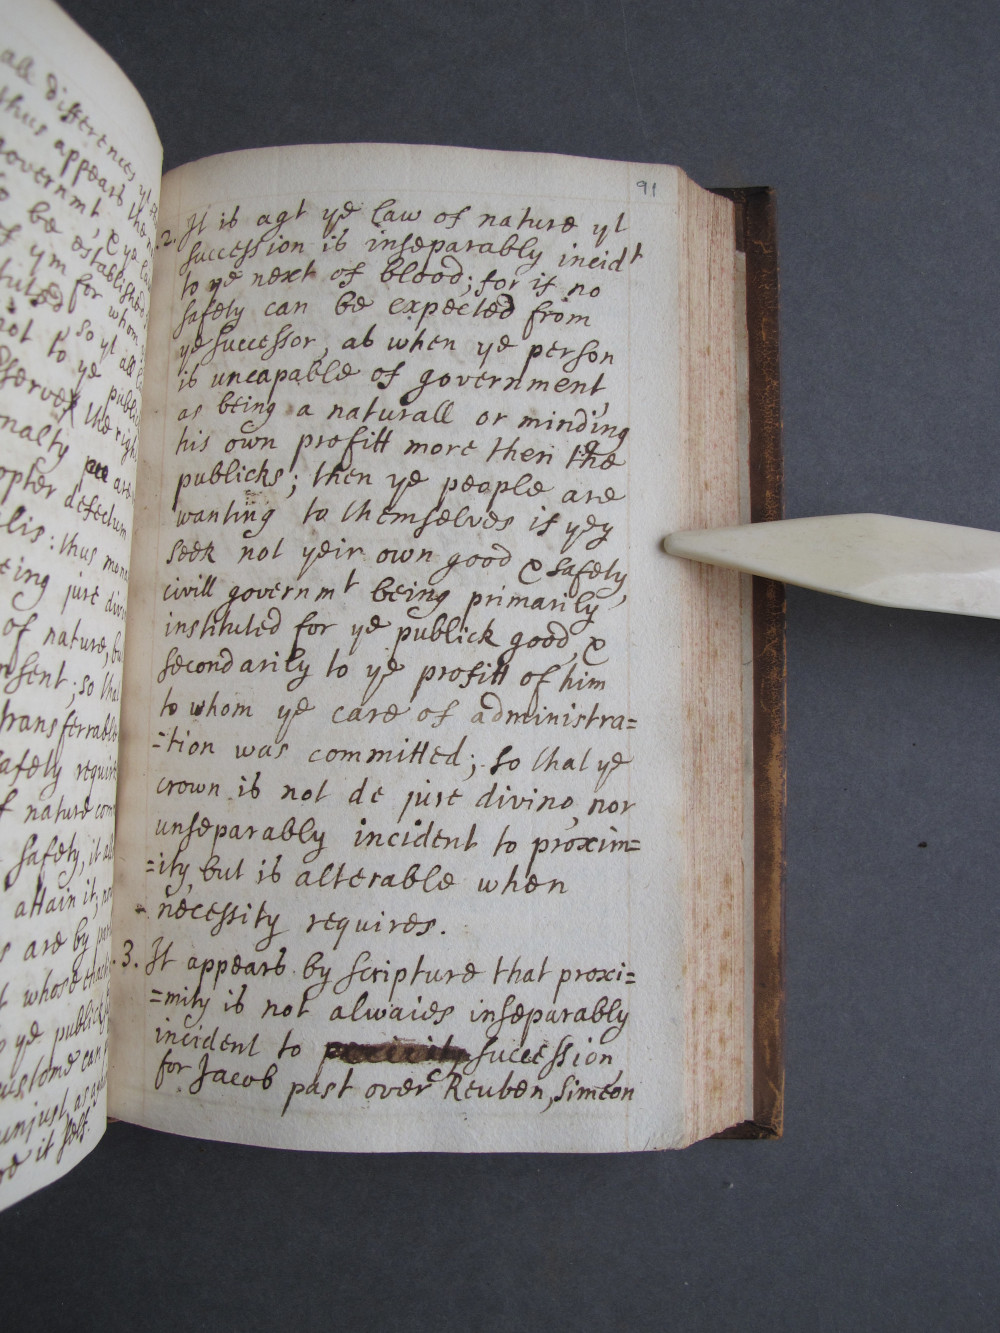 all differences yt
thus appears the
governmt, & ye law
to be established
of ym for whom
so yt all
not to ye publi
the right
nalty are
opter defectum
lis: thus mona
eing jure divi
of nature, bu
nsent; so that
transferrable
afety requir
f nature com
safety, it al
attain it; no
s are by
t whose
o ye publick
custome can
unjust, as
re it self.
91
2. It is agt ye law of nature yt
succession is inseparably incidt
to ye next of blood; for if no
safety can be expected from
ye successor, as when ye person
is uncapable of government,
as being a naturall or minding
his own profitt more then the
publicks; then ye people are
wanting to themselves if yey
seek not yeir own good & safety,
civill governmt being primarily
instituted for ye publick good, &
secondarily to ye profitt of him
to whom ye care of administra=
=tion was committed; so that ye
crown is not de jure divino, nor
unseparably incident to proxim=
=ity, but is alterable when
necessity requires.
3. It appears by scripture that proxi=
=mity is not alwaies inseparably
incident to succession
for Jacob past over Reuben, Simeon